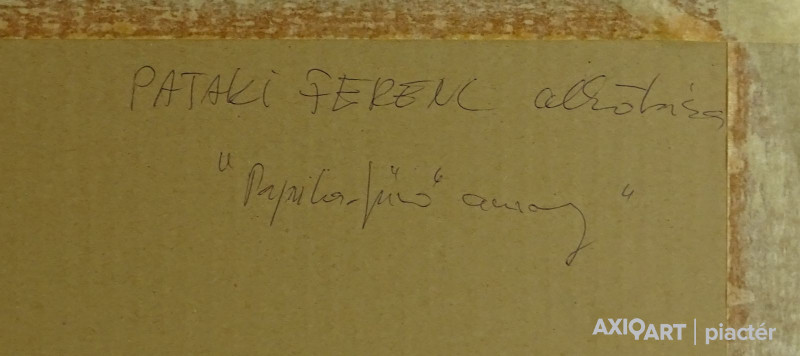 PATAKI FERENC alkotása
"Paprika-fűző" asszony"
AXIOART | piactér